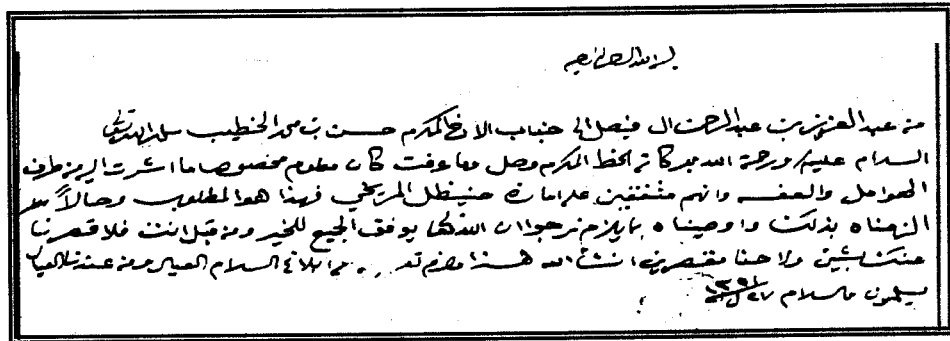 بسم الله الرحمن الرحيم
من عبد العزيز بن عبد الرحمن ال فيصل الى جناب الاخ المكرم حسن بن محمد الخطيب سلمه الله تعالى
السلام عليكم ورحمة الله وبركاته الخط المكرم وصل وما عرفت كان معلوم مخصوصا ما اشرت اليه من طرف
العوامل والعفسه وانهم متفقين على امارة حنيظل المريخي فهذا هو المطلوب وحالاً
الزمناه بذلك واوصيناه بما يلزم نرجوا ان الله تعالى يوفق الجميع للخير ومن قبل انت فلا قصرنا
عنك بشين ولا حنا مقصرين انشاء الله هذا ما لزم مع ابلاغ السلام العيال ومن عندنا العيال
يسلمون والسلام ٢٧